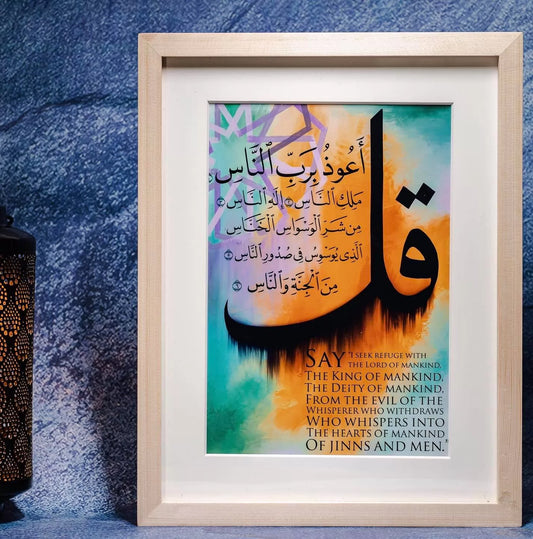 قل
أَعُوذُ بِرَبِّ ٱلنَّاسِ ١
مَلِكِ ٱلنَّاسِ ٢ إِلَٰهِ ٱلنَّاسِ ٣
مِن شَرِّ ٱلْوَسْوَاسِ ٱلْخَنَّاسِ ٤
ٱلَّذِى يُوَسْوِسُ فِى صُدُورِ ٱلنَّاسِ ٥
مِنَ ٱلْجِنَّةِ وَٱلنَّاسِ ٦
SAY "I SEEK REFUGE WITH
THE LORD OF MANKIND,
THE KING OF MANKIND,
THE DEITY OF MANKIND,
FROM THE EVIL OF THE
WHISPERER WHO WITHDRAWS
WHO WHISPERS INTO
THE HEARTS OF MANKIND
OF JINNS AND MEN."